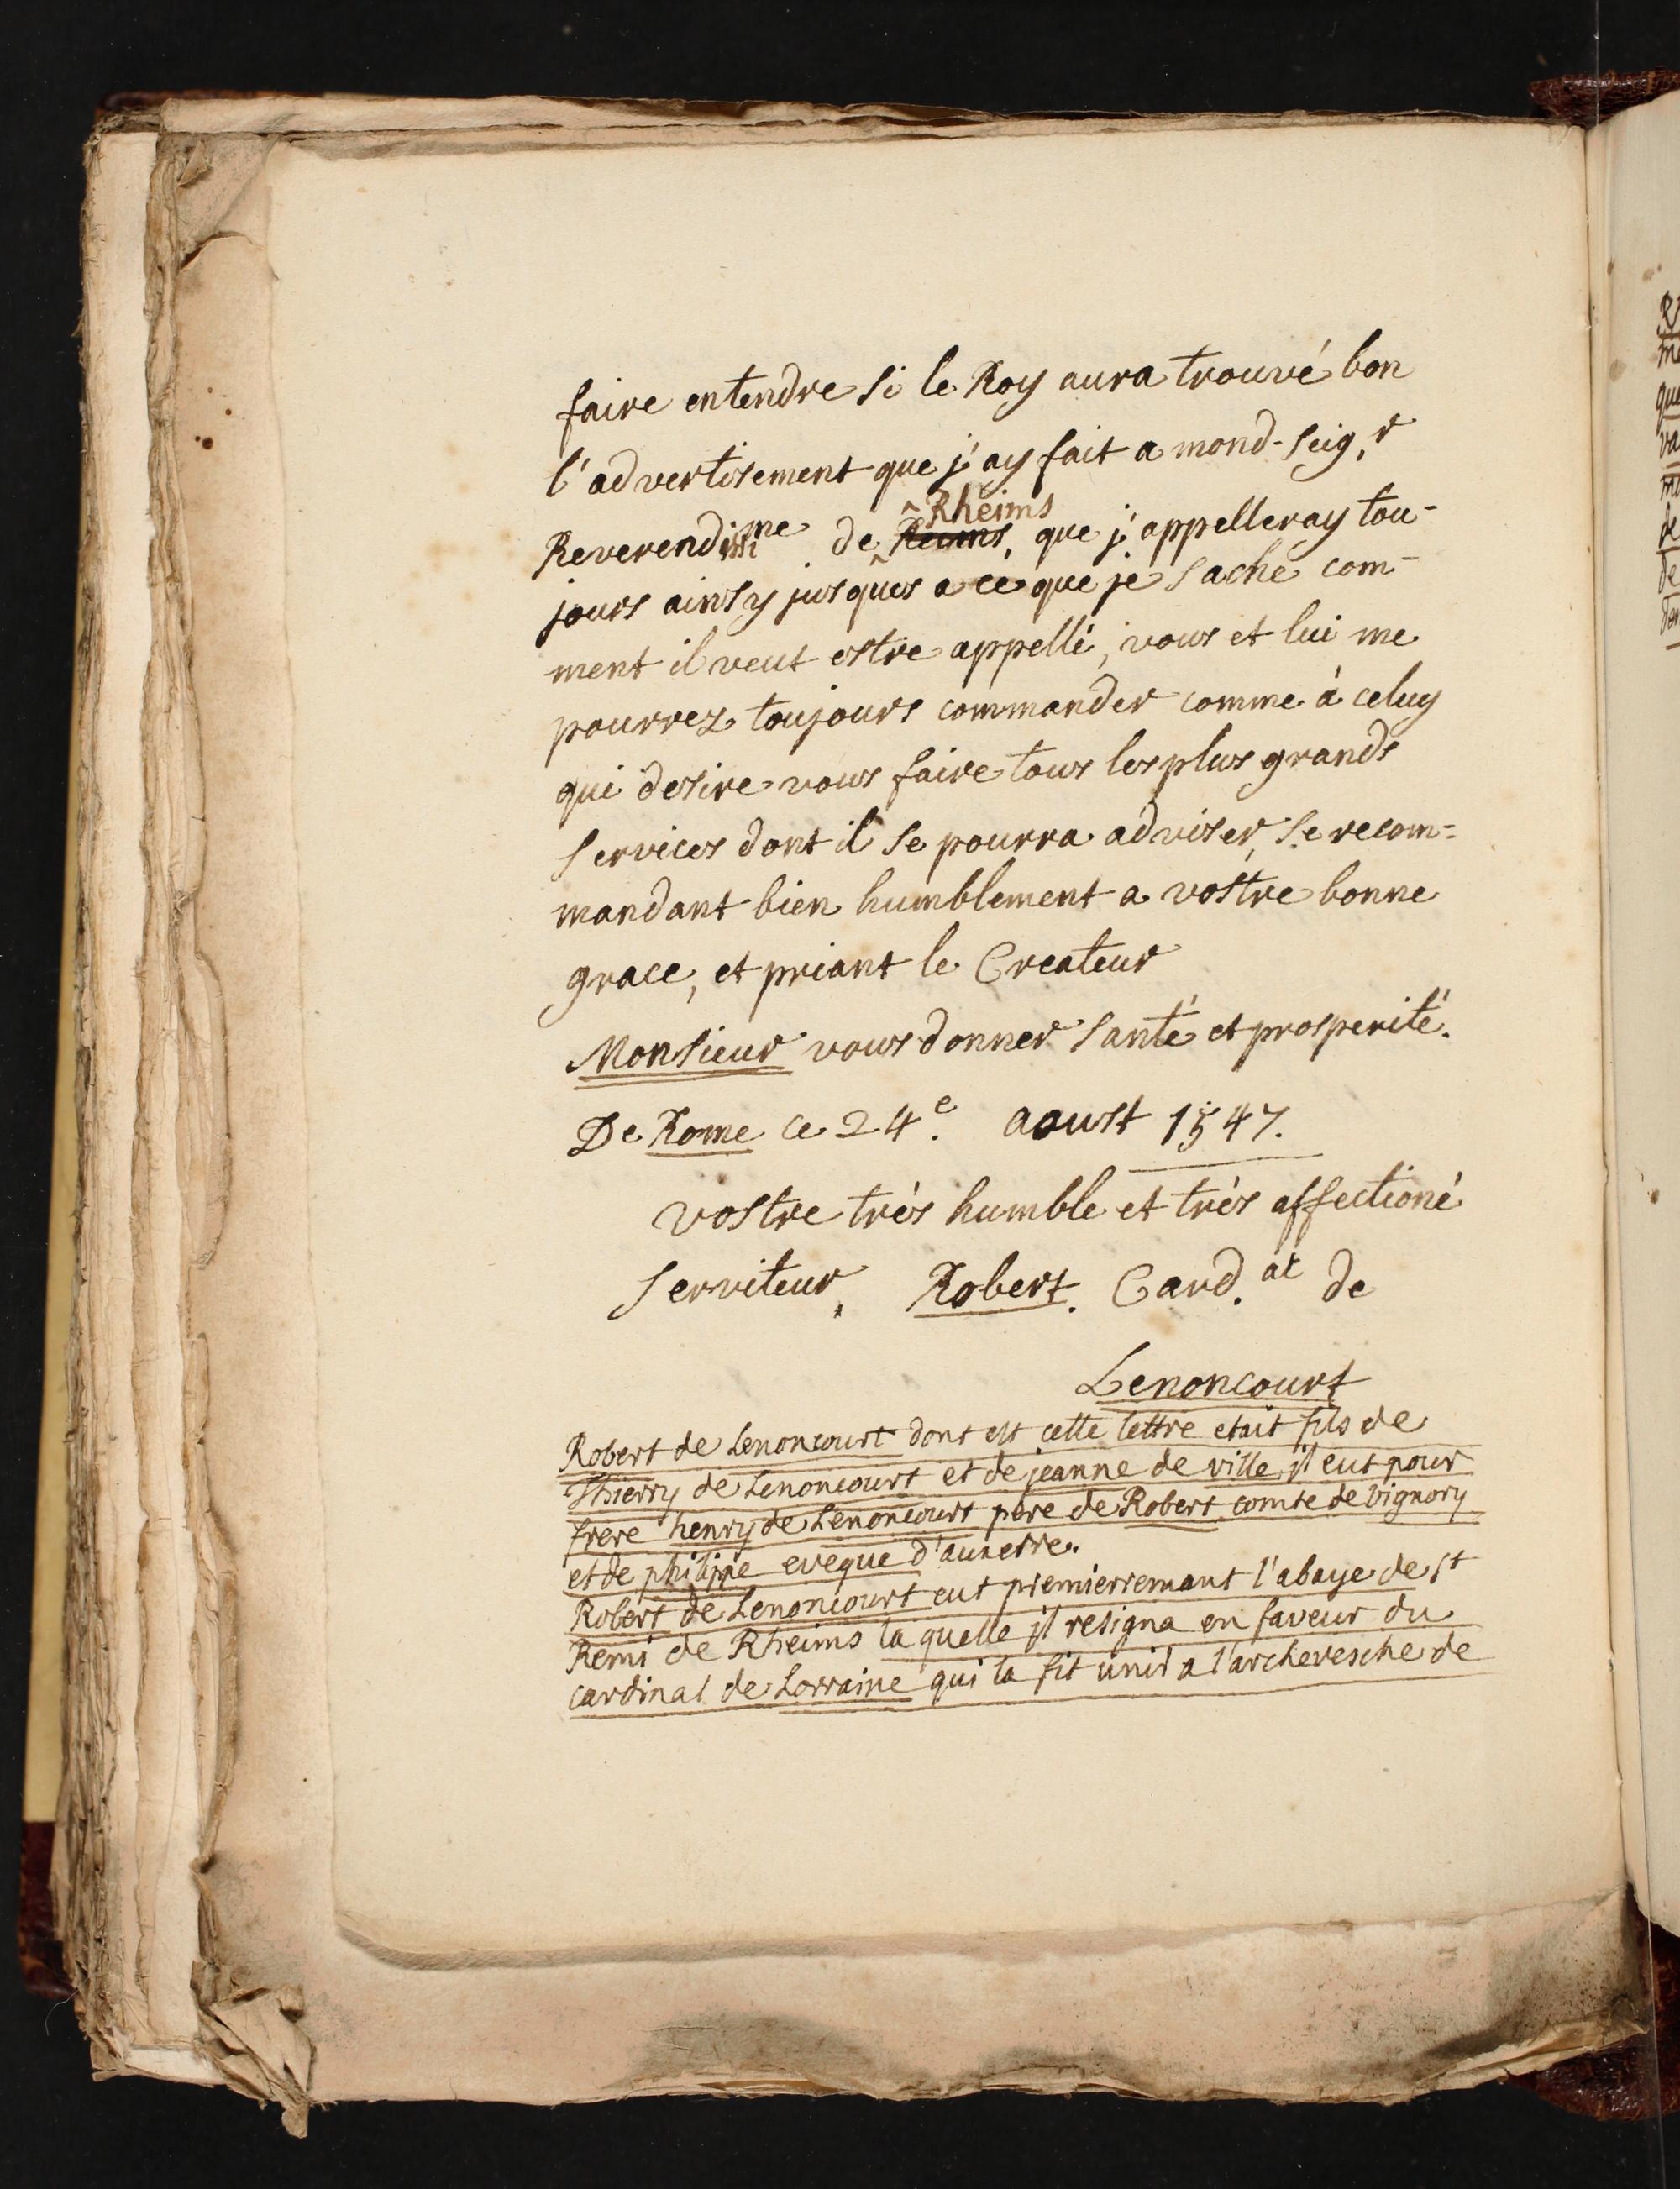 faire entendre si le Roy aura trouvé bon
l'advertisement que j'ay fait a mond. seig.r
Reverendissime de Rheims Reims, que j'appelleray tou-
jours ainsy jusques a ce que je sache com-
ment il veut estre appellé, vous et lui me
pourrez toujours commander comme à celuy
qui desire vous faire tous les plus grands
services dont il se pourra adviser, se recom-
mandant bien humblement a vostre bonne
grace, et priant le Createur
Monsieur vous donner santé et prosperité.
De Rome ce 24e. aoust 1547.
vostre très humble et très affectioné
serviteur, Robert. Card.al de
Lenoncourt
Robert de Lenoncourt dont est cette lettre etait fils de
Thierry de Lenoncourt et de jeanne de ville il eut pour
frere henry de Lenoncourt pere de Robert comte de vignory
et de philippe eveque d'auxerre.
Robert de Lenoncourt eut premierremant l'abaye de st
Remi de Rheims la quelle il resigna en faveur du
cardinal de Lorraine qui la fit unir a l'archevesche de